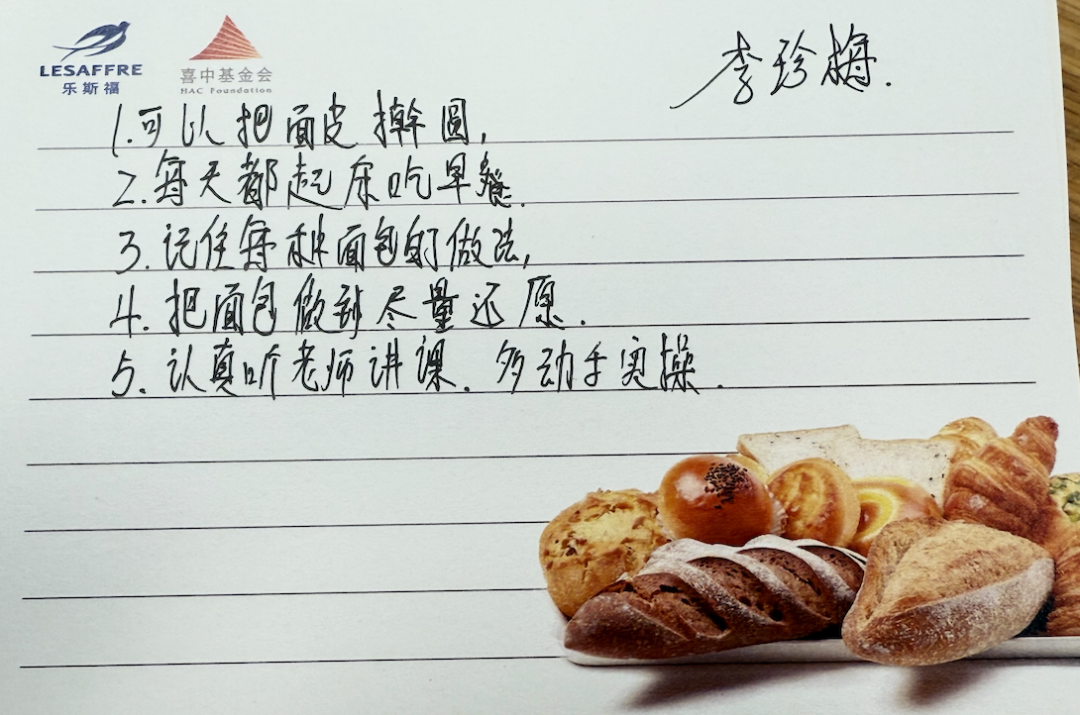 LESAFFRE
乐斯福
喜中基金会
HAC Foundation
李珍梅.
1.可以把面皮擀圆,
2.每天都起床吃早餐.
3.记住每种面包的做法,
4.把面包做到尽量还原.
5.认真听老师讲课.多动手实操.